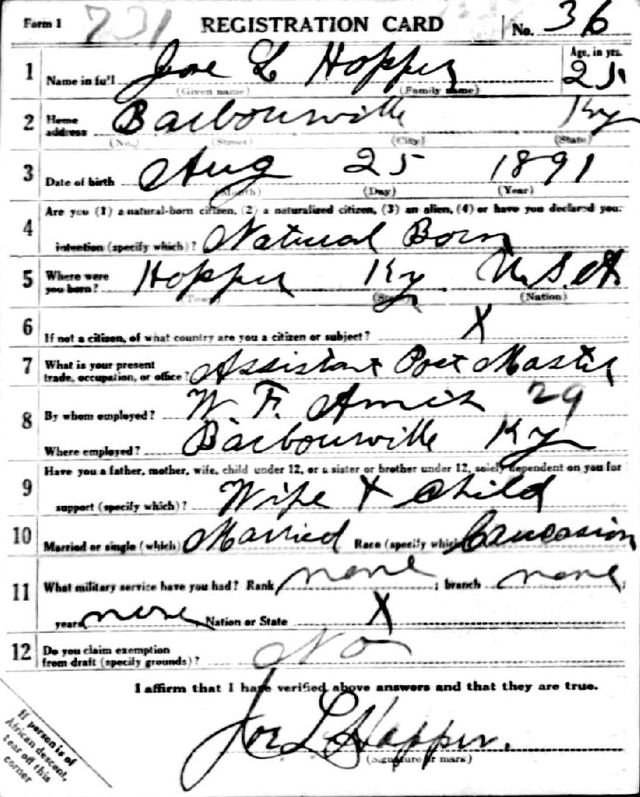 Form 1 731 REGISTRATION CARD No. 36
1 Name in full Joe L Hopper Age, in yrs. 25
(Given name) (Family name)
2 Home address Barbourville Ky
(No.) (Street) (City) (State)
3 Date of birth Aug 25 1891
(Month) (Day) (Year)
4 Are you (1) a natural-born citizen, (2) a naturalized citizen, (3) an alien, (4) or have you declared your
intention (specify which)? Natural Born
5 Where were you born? Hopper Ky U.S.A
(Town) (State) (Nation)
6 If not a citizen, of what country are you a citizen or subject? X
7 What is your present trade, occupation, or office? Assistant Post Master
8 By whom employed? W. F. Amis 29
Where employed? Barbourville Ky
9 Have you a father, mother, wife, child under 12, or a sister or brother under 12, solely dependent on you for
support (specify which)? Wife + Child
10 Married or single (which) Married Race (specify which) Caucasion
11 What military service have you had? Rank none ; branch none ;
years none Nation or State X
12 Do you claim exemption from draft (specify grounds)? No
I affirm that I have verified above answers and that they are true.
Joe L Hopper.
(Signature or mark)
If person is of
African descent,
tear off this
corner